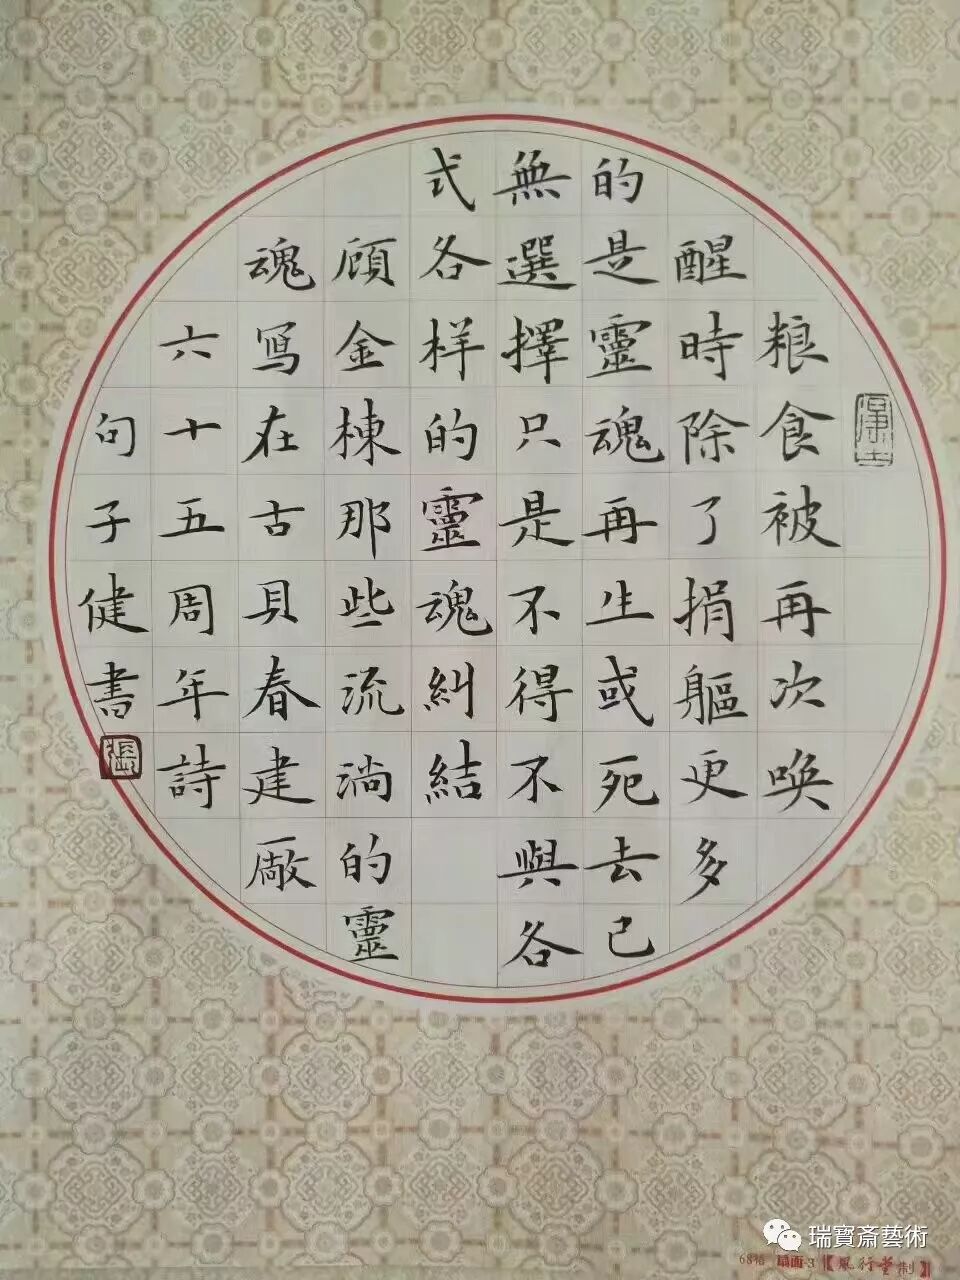 粮食被再次唤
醒時除了捐軀更多
的是靈魂再生或死去已
無選擇只是不得不與各
式各样的靈魂糾結
顾金棟那些流淌的靈
魂寫在古貝春建廠
六十五周年詩
句子健書
瑞寶斋藝術
68格 扇面-3【風行堂制】